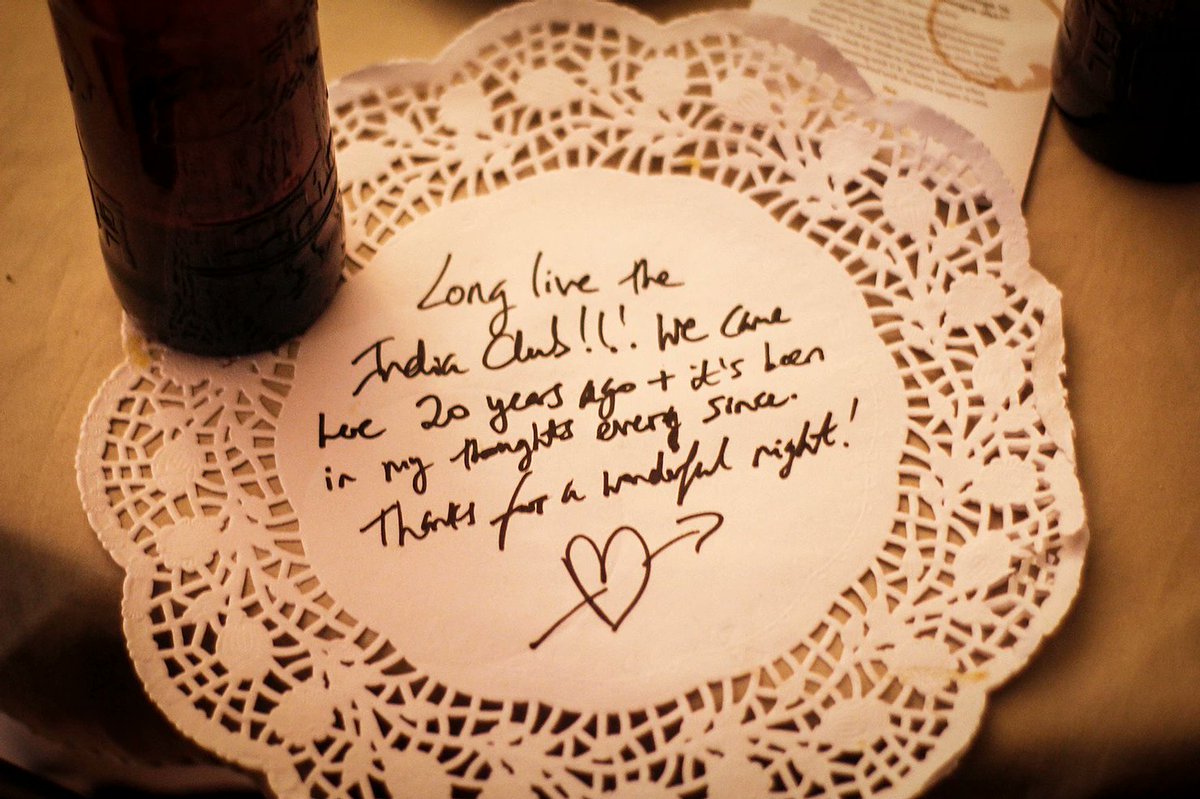 Long live the
India Club!!! We came
here 20 years ago + it's been
in my thoughts every since.
Thanks for a wonderful night!